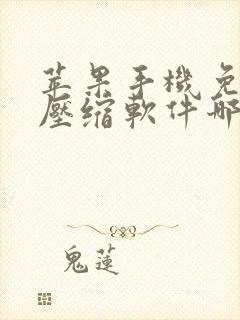 苹果手機免
壓縮軟件哪
鬼蓮